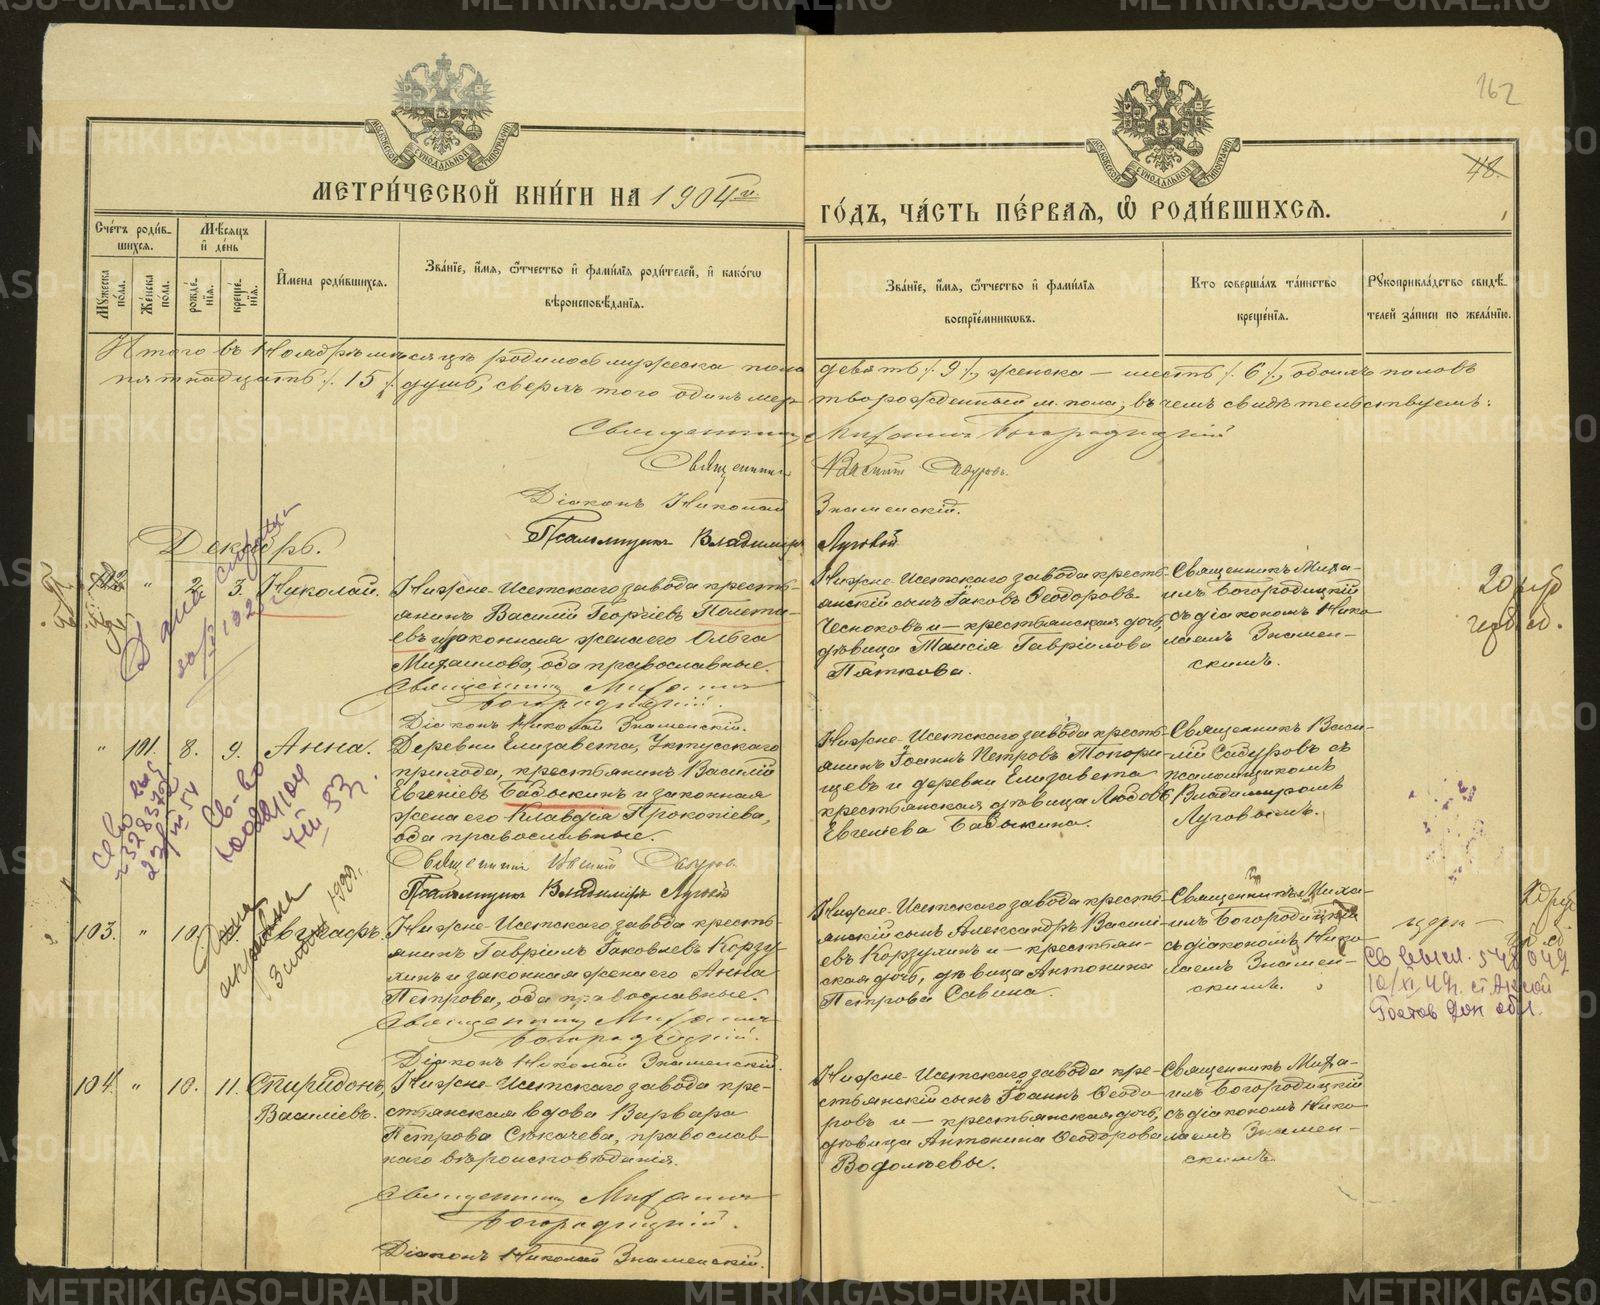 162
48.
МЕТРИ́ЧЕСКОЙ КНИ́ГИ НА 1904й
ГО́ДЪ, ЧА́СТЬ ПЕ́РВАЯ, Ѡ РОДИ́ВШИХСЯ.
Сче́тъ роди́в-
шихся.
Му́жеска по́ла.
Же́нска по́ла.
Мѣ́сяцъ
и де́нь
рожде́-
нія.
креще́-
нія.
Имена роди́вшихся.
Зва́ніе, и́мя, ѻ҆́тчество и фами́лія роди́телей, и како́гѡ
вѣроисповѣ́данія.
Зва́ніе, и́мя, ѻ҆́тчество и фами́лія
воспріе́мниковъ.
Кто соверша́лъ та́инство
креще́нія.
Рукоприкла́дство свидѣ́-
телей за́писи по жела́нію.
Итого въ Ноябрѣ мѣсяцѣ родилось мужеска пола девять /. 9 /., женска – шесть /. 6 /., обоихъ половъ
пятнадцать /. 15 /. душъ, сверхъ того одинъ мертворожденный м. пола, въ чемъ свидѣтельствуемъ:
Священникъ Михаилъ Богородицкій
Священникъ Василій Сапуровъ.
Діаконъ Николай Знаменскій.
Псаломщикъ Владимиръ Луговой
Декабрь.
102 " 2. 3. Николай.
Нижне-Исетскаго завода кресть-
янинъ Василій Георгіевъ Полети-
евъ и законная жена его Ольга
Михаилова, оба православные.
Священникъ Михаилъ
Богородицкій.
Діаконъ Николай Знаменскій.
Нижне-Исетскаго завода кресть-
янскій сынъ Іаковъ Ѳеодоровъ
Чесноковъ и – крестьянская дочь,
дѣвица Таисія Гавріилова
Пяткова.
Священникъ Миха-
илъ Богородицкій
съ діакономъ Нико-
лаемъ Знамен-
скимъ.
" 101. 8. 9. Анна.
Деревни Елизавета, Уктусскаго
прихода, крестьянинъ Василій
Евгеніевъ Бабыкинъ и законная
жена его Клавдія Прокопіева,
оба православные.
Священникъ Василій Сапуровъ.
Псаломщикъ Владимиръ Луговой
Нижне-Исетскаго завода кресть-
янинъ Іоаннъ Петровъ Топори-
щевъ и деревни Елизавета
крестьянская дѣвица Любовь
Евгеніева Бабыкина.
Священникъ Васи-
лій Сапуровъ съ
псаломщикомъ
Владимиромъ
Луговымъ.
103. " 10. Евграфъ.
Нижне-Исетскаго завода кресть-
янинъ Гавріилъ Іаковлевъ Корзу-
хинъ и законная жена его Анна
Петрова, оба православные.
Священникъ Михаилъ
Богородицкій.
Діаконъ Николай Знаменскій.
Нижне-Исетскаго завода кресть-
янскій сынъ Александръ Василі-
евъ Корзухинъ и – крестьян-
ская дочь, дѣвица Антонина
Петрова Савина.
Священникъ Миха-
илъ Богородицкій
съ діакономъ Нико-
лаемъ Знамен-
скимъ.
104. " 10. 11. Спиридонъ,
Василіевъ.
Нижне-Исетскаго завода кре-
стьянская вдова Варвара
Петрова Секачева, православ-
наго вѣроисповѣданія.
Священникъ Михаилъ
Богородицкій.
Діаконъ Николай Знаменскій.
Нижне-Исетскаго завода кре-
стьянскій сынъ Іоаннъ Ѳеодо-
ровъ и – крестьянская дочь,
дѣвица Антонина Ѳеодорова
Водолѣевы.
Священникъ Миха-
илъ Богородицкій
съ діакономъ Нико-
лаемъ Знамен-
скимъ.
METRIKI.GASO-URAL.RU